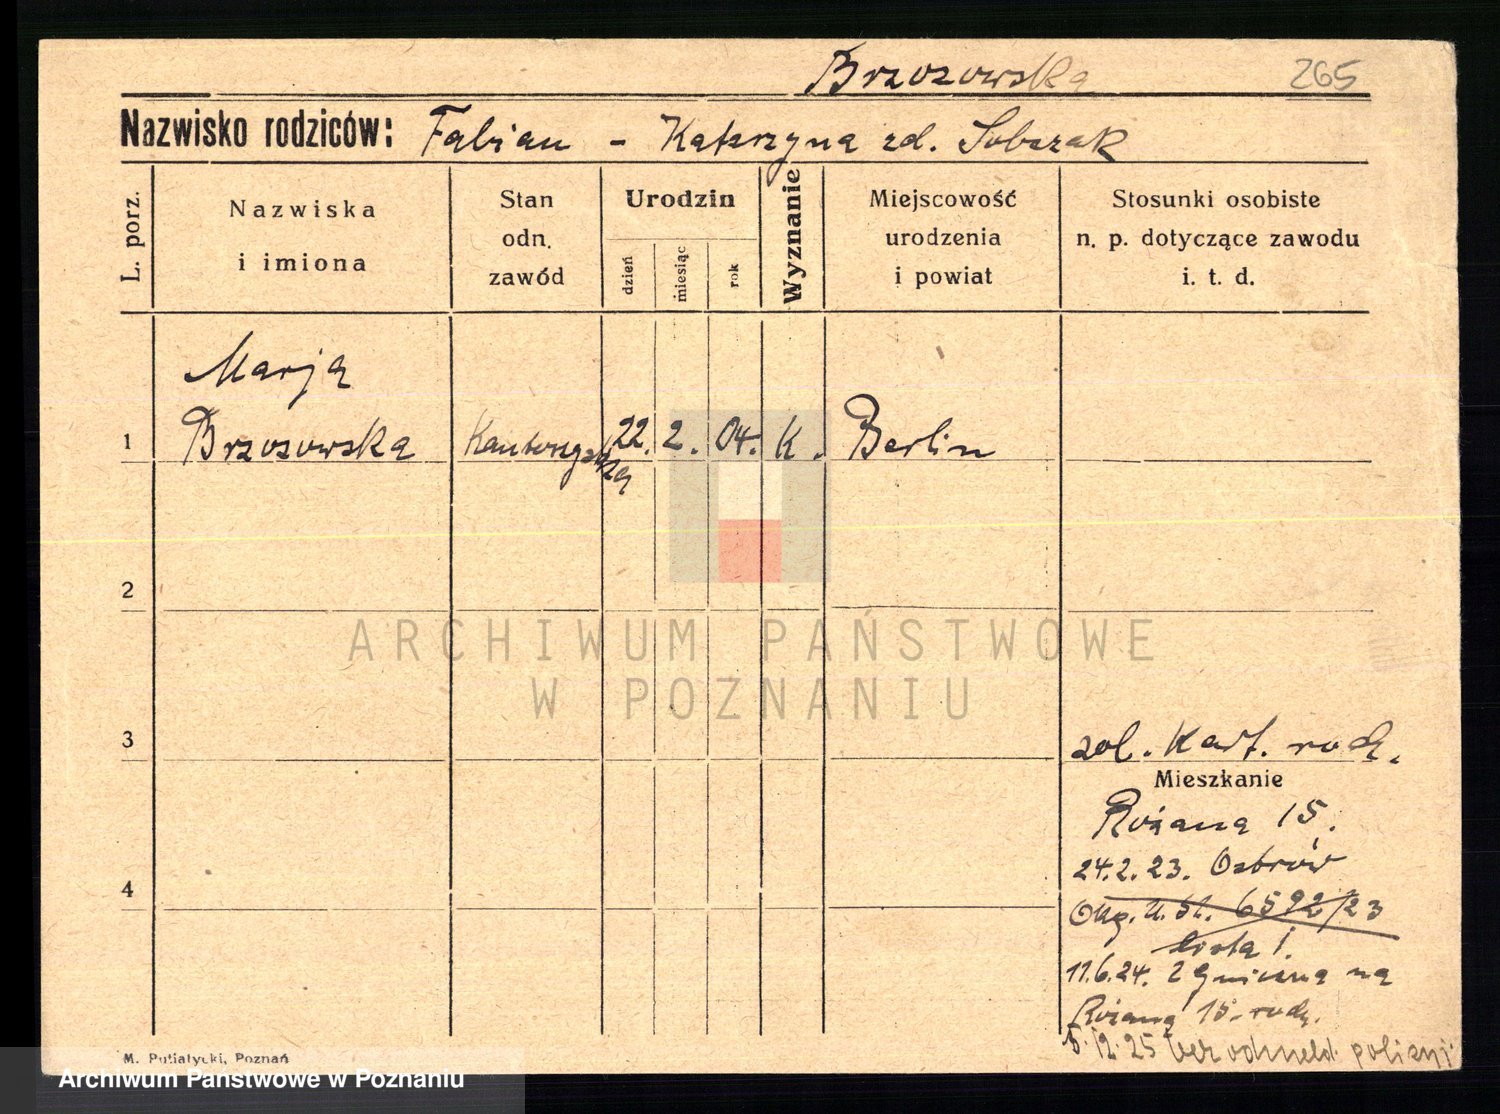 Brzozowska 265
Nazwisko rodziców: Fabian - Katarzyna zd. Sobczak
L. porz.
Nazwiska i imiona
Stan odn. zawód
Urodzin
dzień miesiąc rok
Wyznanie
Miejscowość urodzenia i powiat
Stosunki osobiste n. p. dotyczące zawodu i. t. d.
Marja
1 Brzozowska Kantorzystka 22. 2. 04. K. Berlin
2
ARCHIWUM PAŃSTWOWE
W POZNANIU
3
zał. Kart. rodz.
Mieszkanie
Różana 15.
24.2.23. Ostrów
4
6592/23
11.6.24. z Gniezna na
Różaną 15. rodz.
5.12.25 policyj.
M. Putiatycki, Poznań
Archiwum Państwowe w Poznaniu